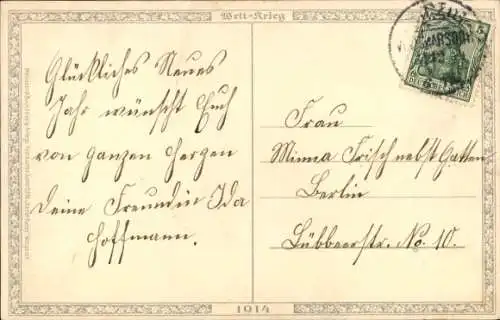 Welt-Krieg
Glückliches Neues
Jahr wünscht Euch
von ganzen Herzen
Deine Freundin Ida
Hoffmann.
Frau
Minna Frisch nebst Gatten
Berlin
Lübbenerstr. No. 10.
1914
5